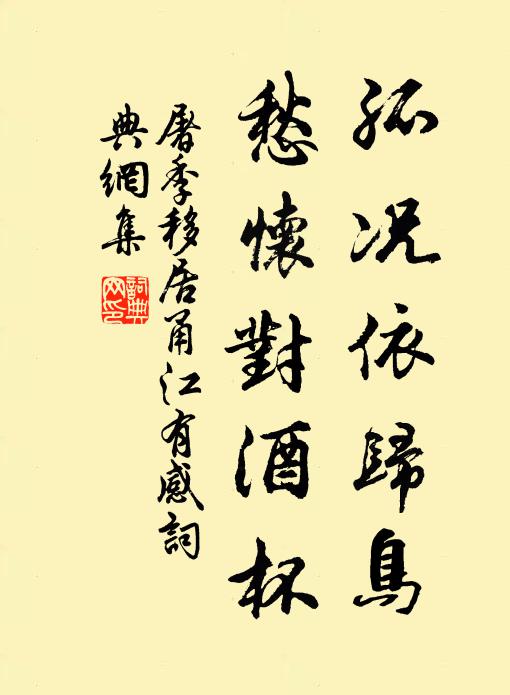 孤况依歸鳥
愁懷對酒杯
暑季移居甬江有感詞
典網集
詞典网印